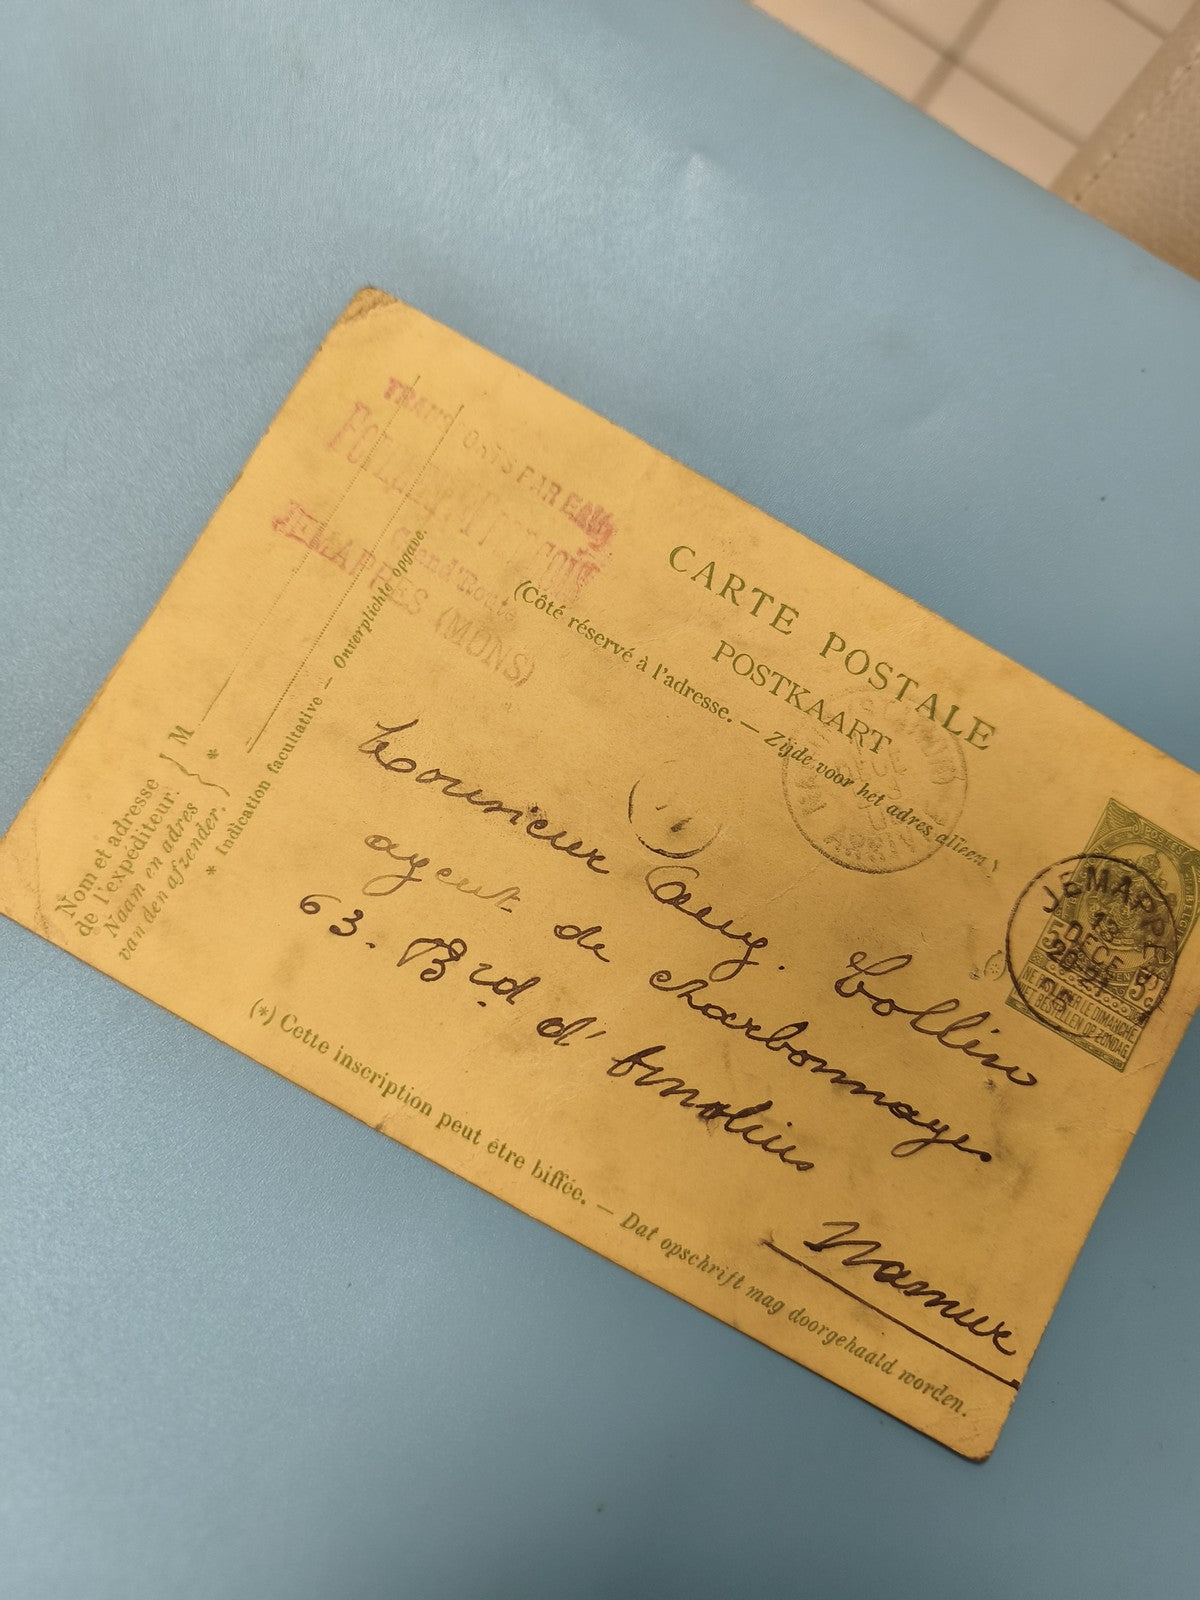 TRANSPORTS PAR EAU
JEMAPPES (MONS)
CARTE POSTALE
POSTKAART
(Côté réservé à l'adresse. — Zijde voor het adres alleen)
Nom et adresse
de l'expéditeur.
Naam en adres
van den afzender.
M
*
* Indication facultative — Onverplichte opgave.
POSTES
JEMAPPES
13
DECE
20-21
05
5c
5c
NE PAS LIVRER LE DIMANCHE
NIET BESTELLEN OP ZONDAG
Monsieur Aug. Collin
agent de charbonnages
63. Brd d'
Namur
(*) Cette inscription peut être biffée. — Dat opschrift mag doorgehaald worden.